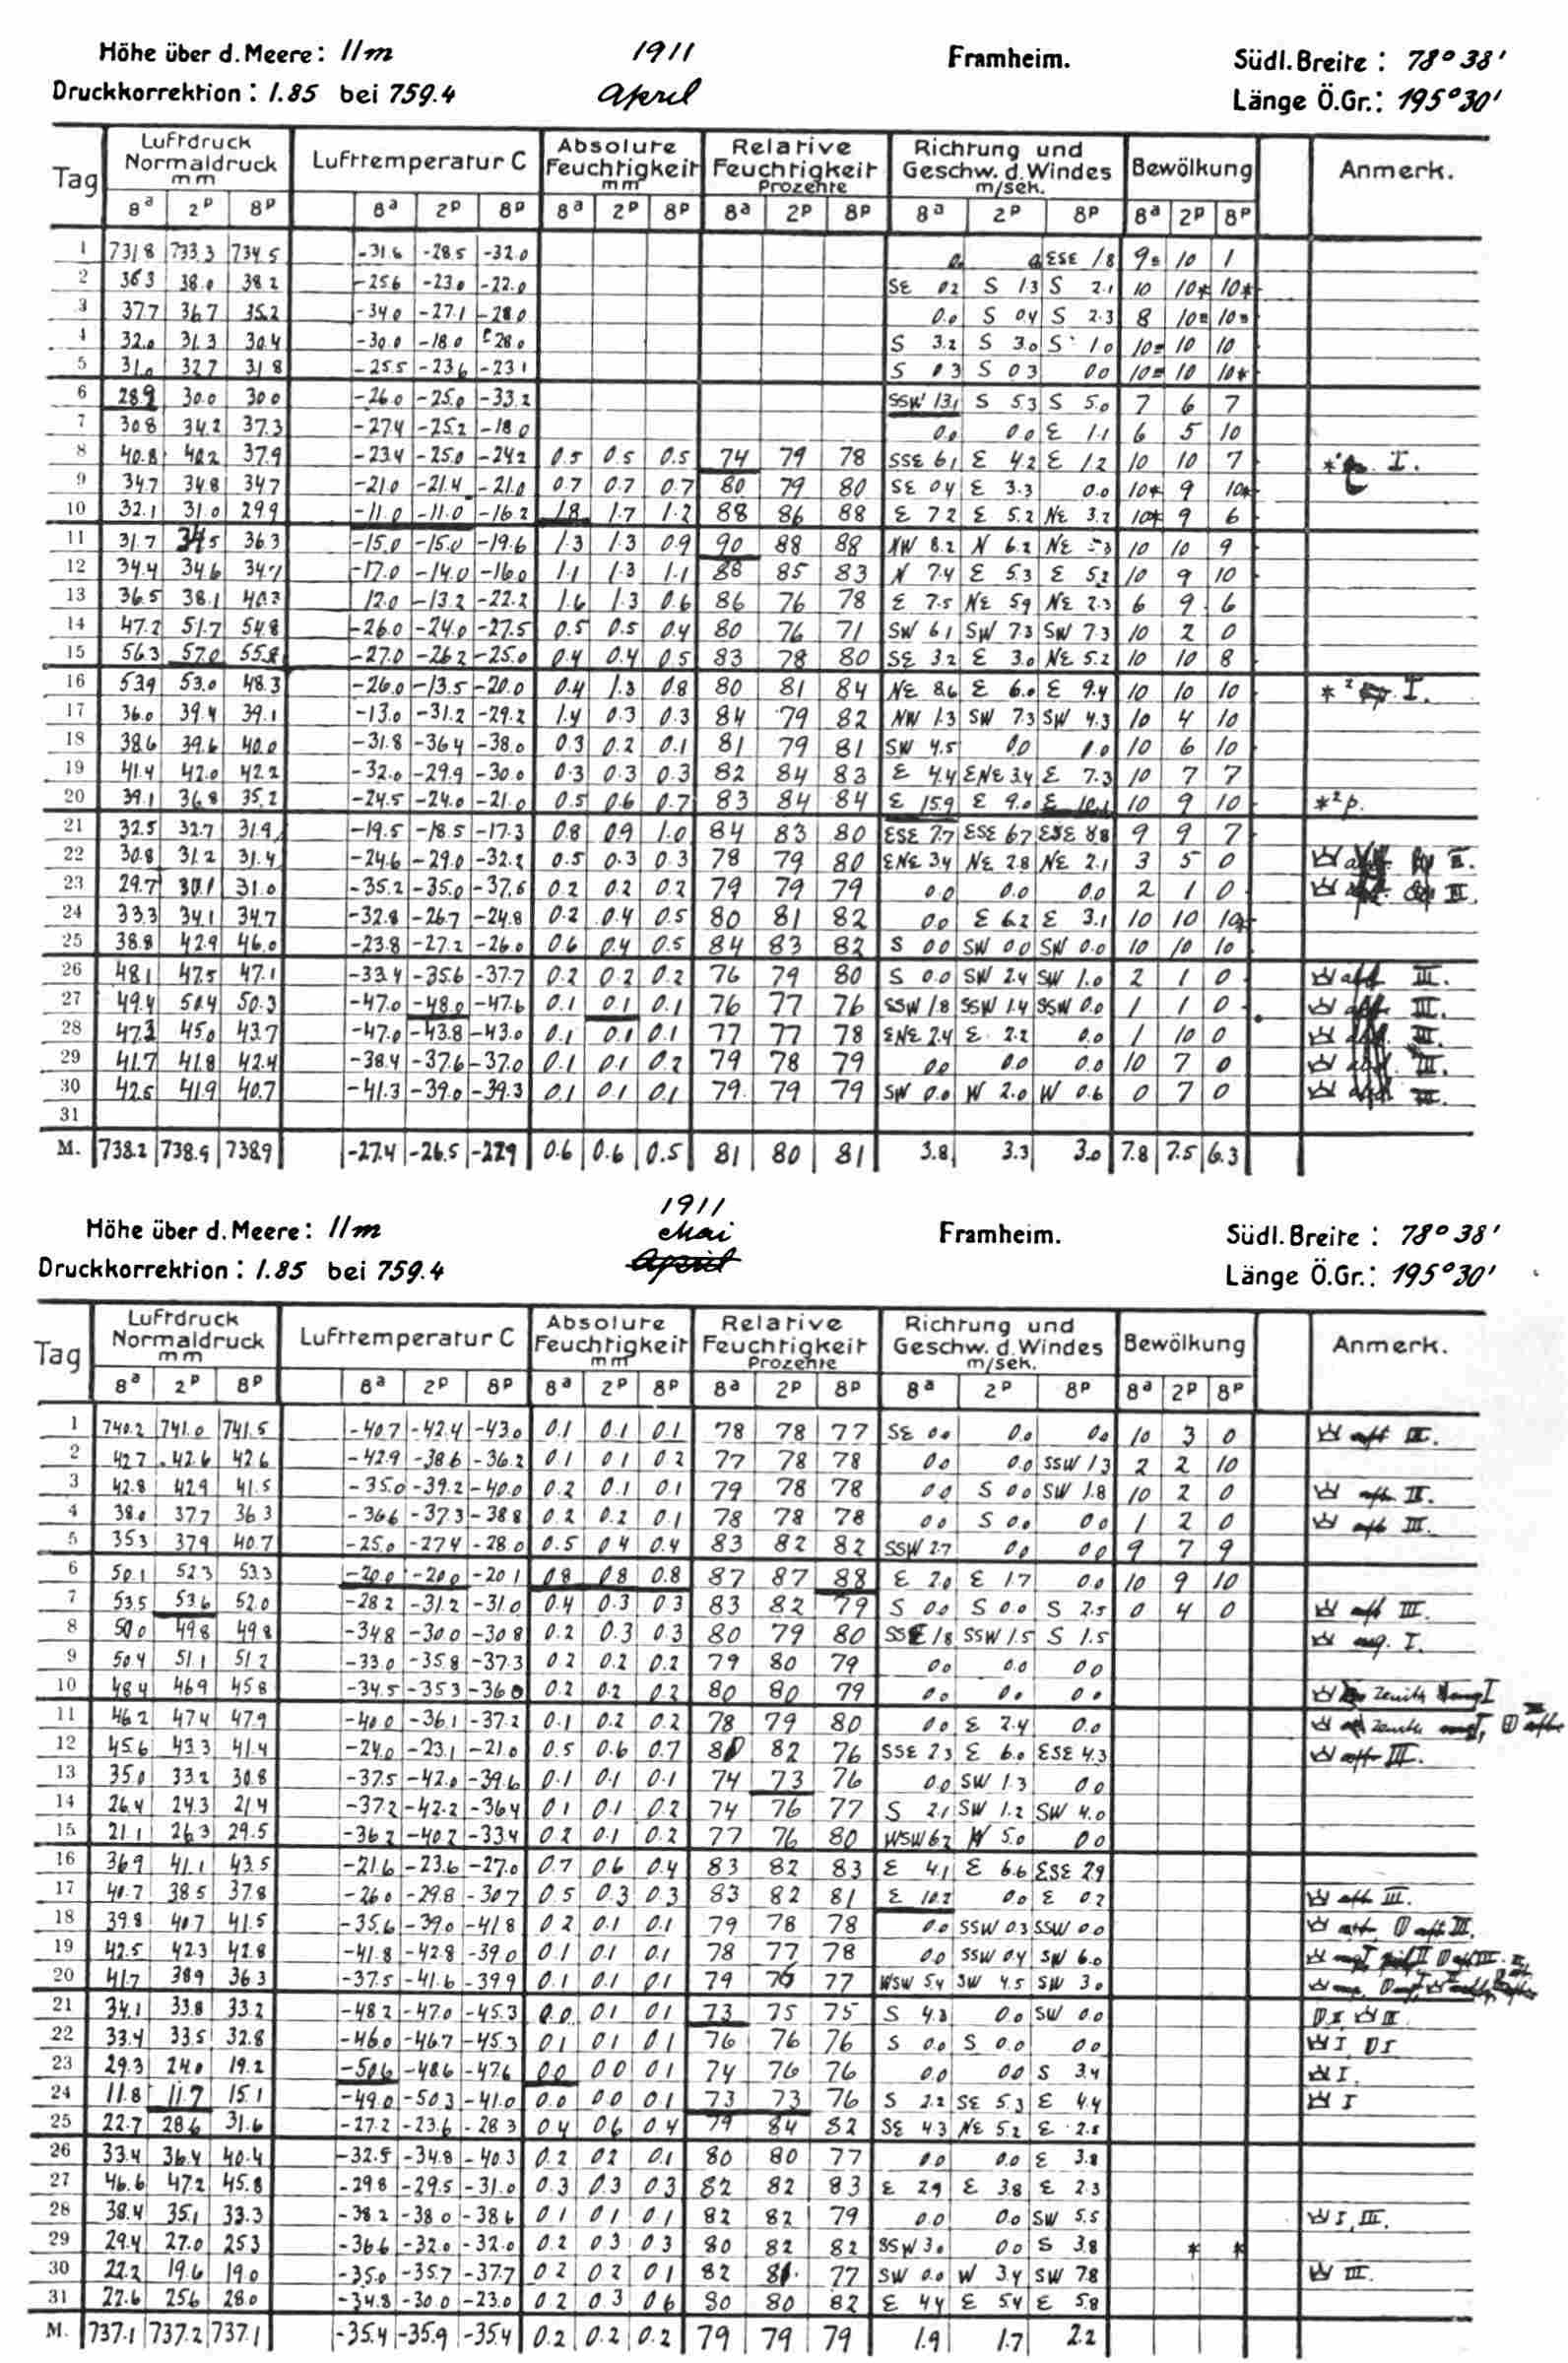 Höhe über d. Meere: 11m 1911 Framheim. Südl. Breite: 78° 38'
Druckkorrektion: 1.85 bei 759.4 April Länge Ö.Gr.: 195° 30'
Tag Luftdruck Normaldruck mm Lufttemperatur C Absolute Feuchtigkeit mm Relative Feuchtigkeit Prozente Richtung und Geschw. d. Windes m/sek. Bewölkung Anmerk.
8a 2p 8p 8a 2p 8p 8a 2p 8p 8a 2p 8p 8a 2p 8p 8a 2p 8p
1 731.8 733.3 734.5 -31.6 -28.5 -32.0 ESE 1.8 10 1
2 36.3 38.0 38.2 -25.6 -23.0 -22.0 SE 0.2 S 1.3 S 2.1 10 10* 10*
3 37.7 36.7 35.2 -34.0 -27.1 -28.0 0.0 S 0.4 S 2.3 8 10≡ 10≡
4 32.0 31.3 30.4 -30.0 -18.0 28.0 S 3.2 S 3.0 S 1.0 10≡ 10 10
5 31.0 32.7 31.8 -25.5 -23.6 -23.1 S 0.3 S 0.3 0.0 10≡ 10 10*
6 28.9 30.0 30.0 -26.0 -25.0 -33.2 SSW 13.1 S 5.3 S 5.0 7 6 7
7 30.8 34.2 37.3 -27.4 -25.2 -18.0 0.0 0.0 E 1.1 6 5 10
8 40.8 40.2 37.9 -23.4 -25.0 -24.2 0.5 0.5 0.5 74 79 78 SSE 6.1 E 4.2 E 1.2 10 10 7 I.
9 34.7 34.8 34.7 -21.0 -21.4 -21.0 0.7 0.7 0.7 80 79 80 SE 0.4 E 3.3 0.0 10* 9 10*
10 32.1 31.0 29.9 -11.0 -11.0 -16.2 1.8 1.7 1.2 88 86 88 E 7.2 E 5.2 NE 3.2 10* 9 6
11 31.7 34.5 36.3 -15.0 -15.0 -19.6 1.3 1.3 0.9 90 88 88 NW 8.2 N 6.2 NE 10 10 9
12 34.4 34.6 34.7 -17.0 -14.0 -16.0 1.1 1.3 1.1 88 85 83 N 7.4 E 5.3 E 5.2 10 9 10
13 36.5 38.1 40.3 12.0 -13.2 -22.2 1.6 1.3 0.6 86 76 78 E 7.5 NE 5.9 NE 2.3 6 9 6
14 47.2 51.7 54.8 -26.0 -24.0 -27.5 0.5 0.5 0.4 80 76 71 SW 6.1 SW 7.3 SW 7.3 10 2 0
15 56.3 57.0 55.8 -27.0 -26.2 -25.0 0.4 0.4 0.5 83 78 80 SE 3.2 E 3.0 NE 5.2 10 10 8
16 53.9 53.0 48.3 -26.0 -13.5 -20.0 0.4 1.3 0.8 80 81 84 NE 8.6 E 6.0 E 9.4 10 10 10 *² I.
17 36.0 39.4 39.1 -13.0 -31.2 -29.2 1.4 0.3 0.3 84 79 82 NW 1.3 SW 7.3 SW 4.3 10 4 10
18 38.6 39.6 40.0 -31.8 -36.4 -38.0 0.3 0.2 0.1 81 79 81 SW 4.5 0.0 10 6 10
19 41.4 42.0 42.2 -32.0 -29.9 -30.0 0.3 0.3 0.3 82 84 83 E 4.4 ENE 3.4 E 7.3 10 7 7
20 39.1 36.8 35.2 -24.5 -24.0 -21.0 0.5 0.6 0.7 83 84 84 E 15.9 E 9.0 E 10.1 10 9 10 *² p.
21 32.5 32.7 31.9 -19.5 -18.5 -17.3 0.8 0.9 1.0 84 83 80 ESE 7.7 ESE 6.7 ESE 8.8 9 9 7
22 30.8 31.2 31.4 -24.6 -29.0 -32.2 0.5 0.3 0.3 78 79 80 ENE 3.4 NE 2.8 NE 2.1 3 5 0
23 29.7 30.1 31.0 -35.2 -35.0 -37.6 0.2 0.2 0.2 79 79 79 0.0 0.0 0.0 2 1 0
24 33.3 34.1 34.7 -32.8 -26.7 -24.8 0.2 0.4 0.5 80 81 82 0.0 E 6.2 E 3.1 10 10 10*
25 38.8 42.9 46.0 -23.8 -27.2 -26.0 0.6 0.4 0.5 84 83 82 S 0.0 SW 0.0 SW 0.0 10 10 10
26 48.1 47.5 47.1 -33.4 -35.6 -37.7 0.2 0.2 0.2 76 79 80 S 0.0 SW 2.4 SW 1.0 2 1 0 III.
27 49.4 50.4 50.3 -47.0 -48.0 -47.6 0.1 0.1 0.1 76 77 76 SSW 1.8 SSW 1.4 SSW 0.0 1 1 0 III.
28 47.3 45.0 43.7 -47.0 -43.8 -43.0 0.1 0.1 0.1 77 77 78 ENE 2.4 E 2.2 0.0 1 10 0 III.
29 41.7 41.8 42.4 -38.4 -37.6 -37.0 0.1 0.1 0.2 79 78 79 0.0 0.0 0.0 10 7 0 III.
30 42.5 41.9 40.7 -41.3 -39.0 -39.3 0.1 0.1 0.1 79 79 79 SW 0.0 W 2.0 W 0.6 0 7 0 III.
31
M. 738.2 738.9 738.9 -27.4 -26.5 -27.9 0.6 0.6 0.5 81 80 81 3.8 3.3 3.0 7.8 7.5 6.3
1911
Höhe über d. Meere: 11m Mai Framheim. Südl. Breite: 78° 38'
Druckkorrektion: 1.85 bei 759.4 April Länge Ö.Gr.: 195° 30'
Tag Luftdruck Normaldruck mm Lufttemperatur C Absolute Feuchtigkeit mm Relative Feuchtigkeit Prozente Richtung und Geschw. d. Windes m/sek. Bewölkung Anmerk.
8a 2p 8p 8a 2p 8p 8a 2p 8p 8a 2p 8p 8a 2p 8p 8a 2p 8p
1 740.2 741.0 741.5 -40.7 -42.4 -43.0 0.1 0.1 0.1 78 78 77 SE 0.0 0.0 0.0 10 3 0 III.
2 42.7 42.6 42.6 -42.9 -38.6 -36.2 0.1 0.1 0.2 77 78 78 0.0 0.0 SSW 1.3 2 2 10
3 42.8 42.9 41.5 -35.0 -39.2 -40.0 0.2 0.1 0.1 79 78 78 0.0 S 0.0 SW 1.8 10 2 0
4 38.0 37.7 36.3 -36.6 -37.3 -38.8 0.2 0.2 0.1 78 78 78 0.0 S 0.0 0.0 1 2 0 III.
5 35.3 37.9 40.7 -25.0 -27.4 -28.0 0.5 0.4 0.4 83 82 82 SSW 2.7 0.0 0.0 9 7 9
6 50.1 52.3 53.3 -20.0 -20.0 -20.1 0.8 0.8 0.8 87 87 88 E 2.0 E 1.7 0.0 10 9 10
7 53.5 53.6 52.0 -28.2 -31.2 -31.0 0.4 0.3 0.3 83 82 79 S 0.0 S 0.0 S 2.5 0 4 0 III.
8 50.0 49.8 49.8 -34.8 -30.0 -30.8 0.2 0.3 0.3 80 79 80 SSE 1.8 SSW 1.5 S 1.5 I.
9 50.4 51.1 51.2 -33.0 -35.8 -37.3 0.2 0.2 0.2 79 80 79 0.0 0.0 0.0
10 48.4 46.9 45.8 -34.5 -35.3 -36.0 0.2 0.2 0.2 80 80 79 0.0 0.0 0.0 Zenith I
11 46.2 47.4 47.9 -40.0 -36.1 -37.2 0.1 0.2 0.2 78 79 80 0.0 E 2.4 0.0 zenith
12 45.6 43.3 41.4 -24.0 -23.1 -21.0 0.5 0.6 0.7 82 76 SSE 2.3 E 6.0 ESE 4.3 III.
13 35.0 33.2 30.8 -37.5 -42.0 -39.6 0.1 0.1 0.1 74 73 76 0.0 SW 1.3 0.0
14 26.4 24.3 21.4 -37.2 -42.2 -36.4 0.1 0.1 0.2 74 76 77 S 2.1 SW 1.2 SW 4.0
15 21.1 26.3 29.5 -36.2 -40.2 -33.4 0.2 0.1 0.2 77 76 80 WSW 6.2 W 5.0 0.0
16 36.9 41.1 43.5 -21.6 -23.6 -27.0 0.7 0.6 0.4 83 82 83 E 4.1 E 6.6 ESE 2.9
17 40.7 38.5 37.8 -26.0 -29.8 -30.7 0.5 0.3 0.3 83 82 81 E 10.2 0.0 E 0.2 III.
18 39.8 40.7 41.5 -35.6 -39.0 -41.8 0.2 0.1 0.1 79 78 78 0.0 SSW 0.3 SSW 0.0 III.
19 42.5 42.3 42.8 -41.8 -42.8 -39.0 0.1 0.1 0.1 78 77 78 0.0 SSW 0.4 SW 6.0
20 41.7 38.9 36.3 -37.5 -41.6 -39.9 0.1 0.1 0.1 79 76 77 WSW 5.4 SW 4.5 SW 3.0
21 34.1 33.8 33.2 -48.2 -47.0 -45.3 0.0 0.1 0.1 73 75 75 S 4.3 0.0 SW 0.0
22 33.4 33.5 32.8 -46.0 -46.7 -45.3 0.1 0.1 0.1 76 76 76 S 0.0 S 0.0 0.0 I
23 29.3 24.0 19.2 -50.6 -48.6 -47.6 0.0 0.0 0.1 74 76 76 0.0 0.0 S 3.4 I.
24 11.8 11.7 15.1 -49.0 -50.3 -41.0 0.0 0.0 0.1 73 73 76 S 2.2 SE 5.3 E 4.4 I
25 22.7 28.6 31.6 -27.2 -23.6 -28.3 0.4 0.6 0.4 79 84 82 SE 4.3 NE 5.2 E 2.8
26 33.4 36.4 40.4 -32.5 -34.8 -40.3 0.2 0.2 0.1 80 80 77 0.0 0.0 E 3.8
27 46.6 47.2 45.8 -29.8 -29.5 -31.0 0.3 0.3 0.3 82 82 83 E 2.9 E 3.8 E 2.3
28 38.4 35.1 33.3 -38.2 -38.0 -38.6 0.1 0.1 0.1 82 82 79 0.0 0.0 SW 5.5 I, III.
29 29.4 27.0 25.3 -36.6 -32.0 -32.0 0.2 0.3 0.3 80 82 82 SSW 3.0 0.0 S 3.8 * *
30 22.2 19.6 19.0 -35.0 -35.7 -37.7 0.2 0.2 0.1 82 81 77 SW 0.0 W 3.4 SW 7.8 III.
31 22.6 25.6 28.0 -34.8 -30.0 -23.0 0.2 0.3 0.6 80 80 82 E 4.4 E 5.4 E 5.8
M. 737.1 737.2 737.1 -35.4 -35.9 -35.4 0.2 0.2 0.2 79 79 79 1.9 1.7 2.2